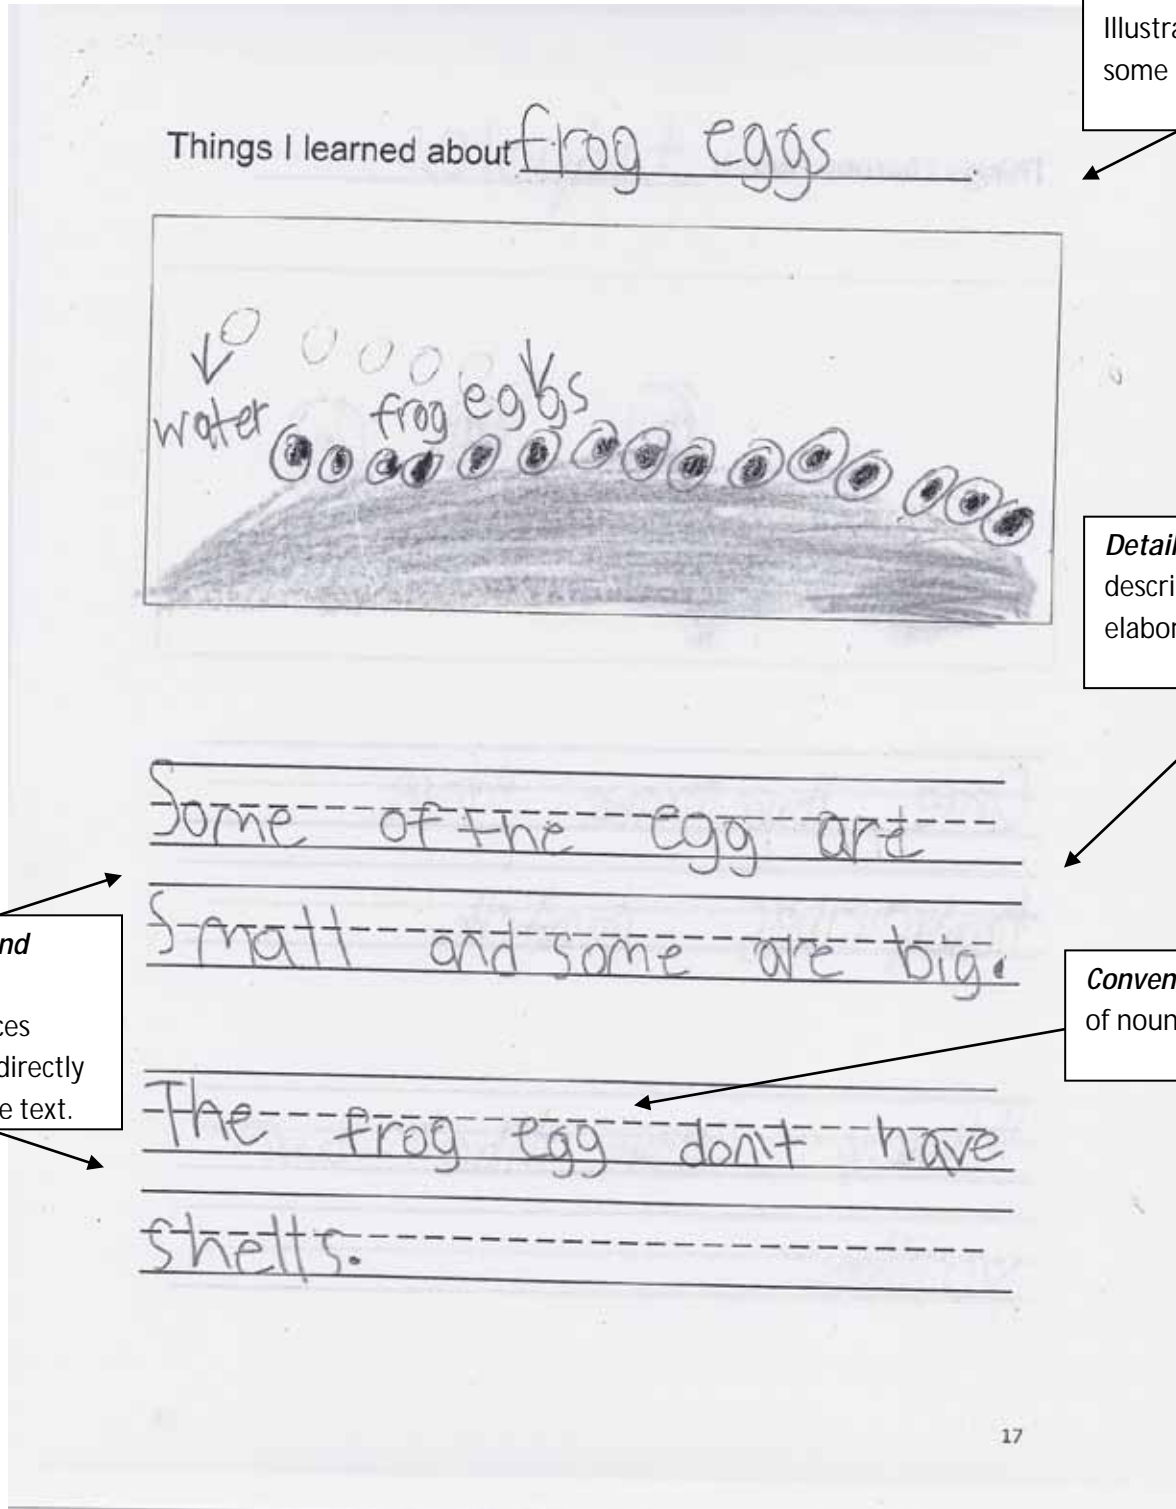 Illustra
some
Things I learned about frog eggs.
water
frog eggs
Detail
descri
elabor
Some of the egg are
small and some are big.
nd
ces
directly
e text.
Conven
of noun
The frog egg don't have
shells.
17